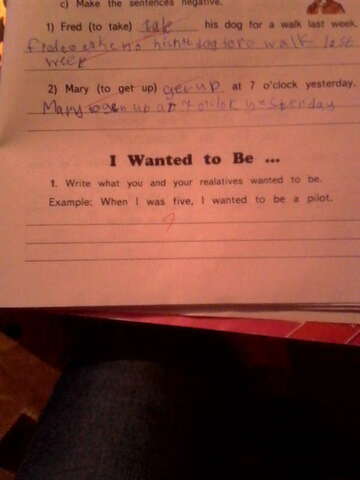 c) Make the sentences negative.
1) Fred (to take) take his dog for a walk last week.
dog for a walk last
week
2) Mary (to get up) get up at 7 o'clock yesterday.
Mary
I Wanted to Be ...
1. Write what you and your realatives wanted to be.
Example: When I was five, I wanted to be a pilot.
?